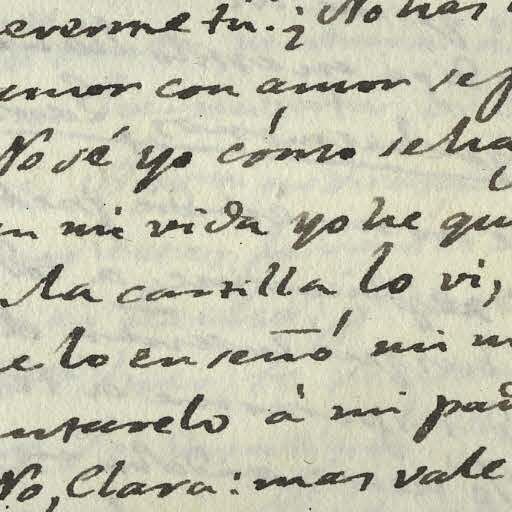 everme tú. ¿No has
amor con amor se p
No sé yo cómo se ha
en mi vida yo he qu
la cartilla lo vi,
e lo enseñó mi m
ntarselo à mi pad
No, Clara: mas vale